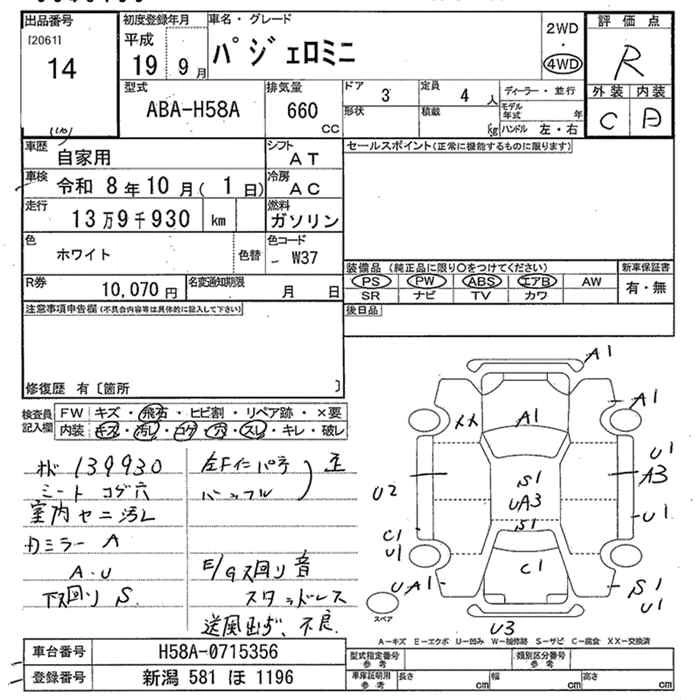 出品番号
[2061]
14
初度登録年月
平成
19 9月
車名・グレード
パジェロミニ
2WD
・
4WD
評価点
R
外装 内装
C D
型式
ABA-H58A
排気量
660
cc
ドア
3
定員
4人
形状
積載
kg
ディーラー・並行
モデル年式 年
ハンドル 左・右
車歴
自家用
シフト
AT
車検
令和 8年10月( 1日)
冷房
AC
走行
13万9千930 km
燃料
ガソリン
色
ホワイト
色替
色コード
W37
R券
10,070円
名変通知期限
月 日
セールスポイント(正常に機能するものに限ります)
装備品 (純正品に限り○をつけてください)
新車保証書
PS PW ABS エアB AW
有・無
SR ナビ TV カワ
後日品
注意事項申告欄(不具合内容等は具体的に記入して下さい)
修復歴 有〔箇所 〕
検査員記入欄
FW キズ・飛石・ヒビ割・リペア跡・×要
内装 キズ・汚レ・コゲ・穴・スレ・キレ・破レ
139930
シート コゲ穴
室内ヤニ汚レ
カミラー A
A・U
下回り S
E/G 回り音
スタッドレス
送風出ず、不良
A1
A1
XX
A1
U1
A3
S1
UA3
S1
U2
U1
C1
U1
C1
UA1
S1
U1
U3
スペア
A-キズ E-エクボ U-凹み W-補修跡 S-サビ C-腐食 XX-交換済
車台番号
H58A-0715356
登録番号
新潟 581 ほ 1196
型式指定番号
参考
類別区分番号
参考
車庫証明用
参考
長さ cm
幅 cm
高さ cm